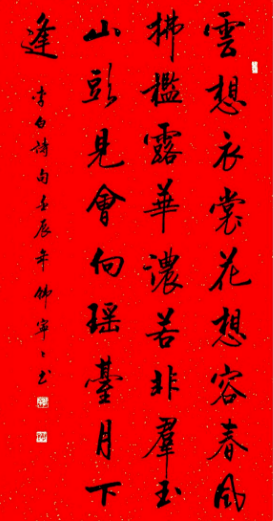 雲想衣裳花想容春風
拂檻露華濃若非羣玉
山頭見會向瑤臺月下
逢
李白詩句壬辰年寧々书